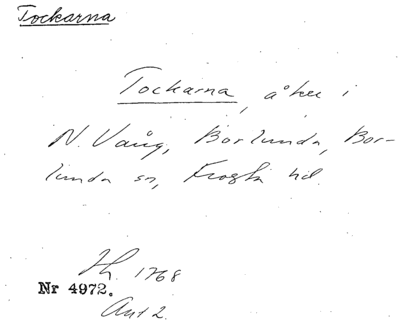 Tockarna
Tockarna, åker i
N. Vång, Borlunda, Bor-
lunda sn, Frosta hd.
Th. 1768
Nr 4972.
Ant 2.